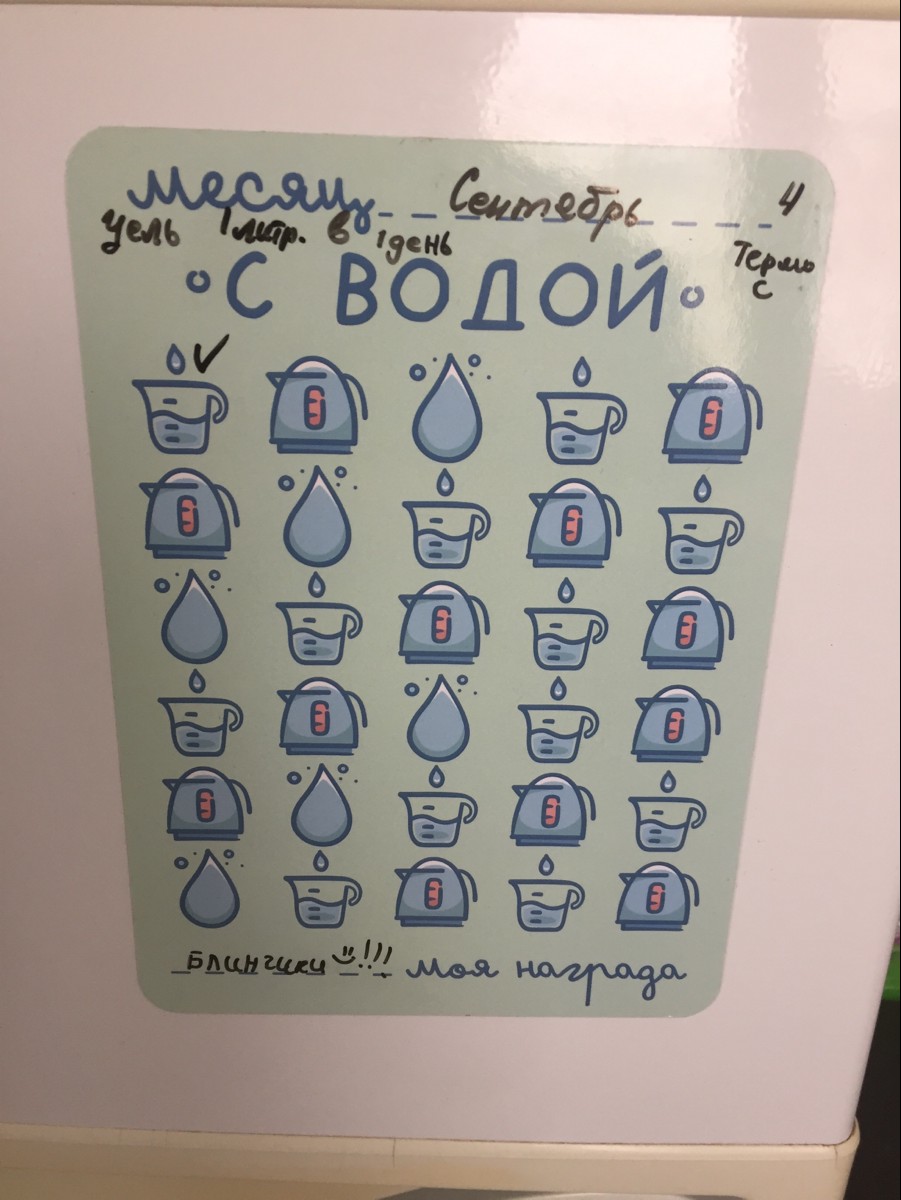 месяц Сентябрь 4
Цель 1 литр. в 1 день
Термо
с
С ВОДОЙ
Блинчики !!!
моя награда